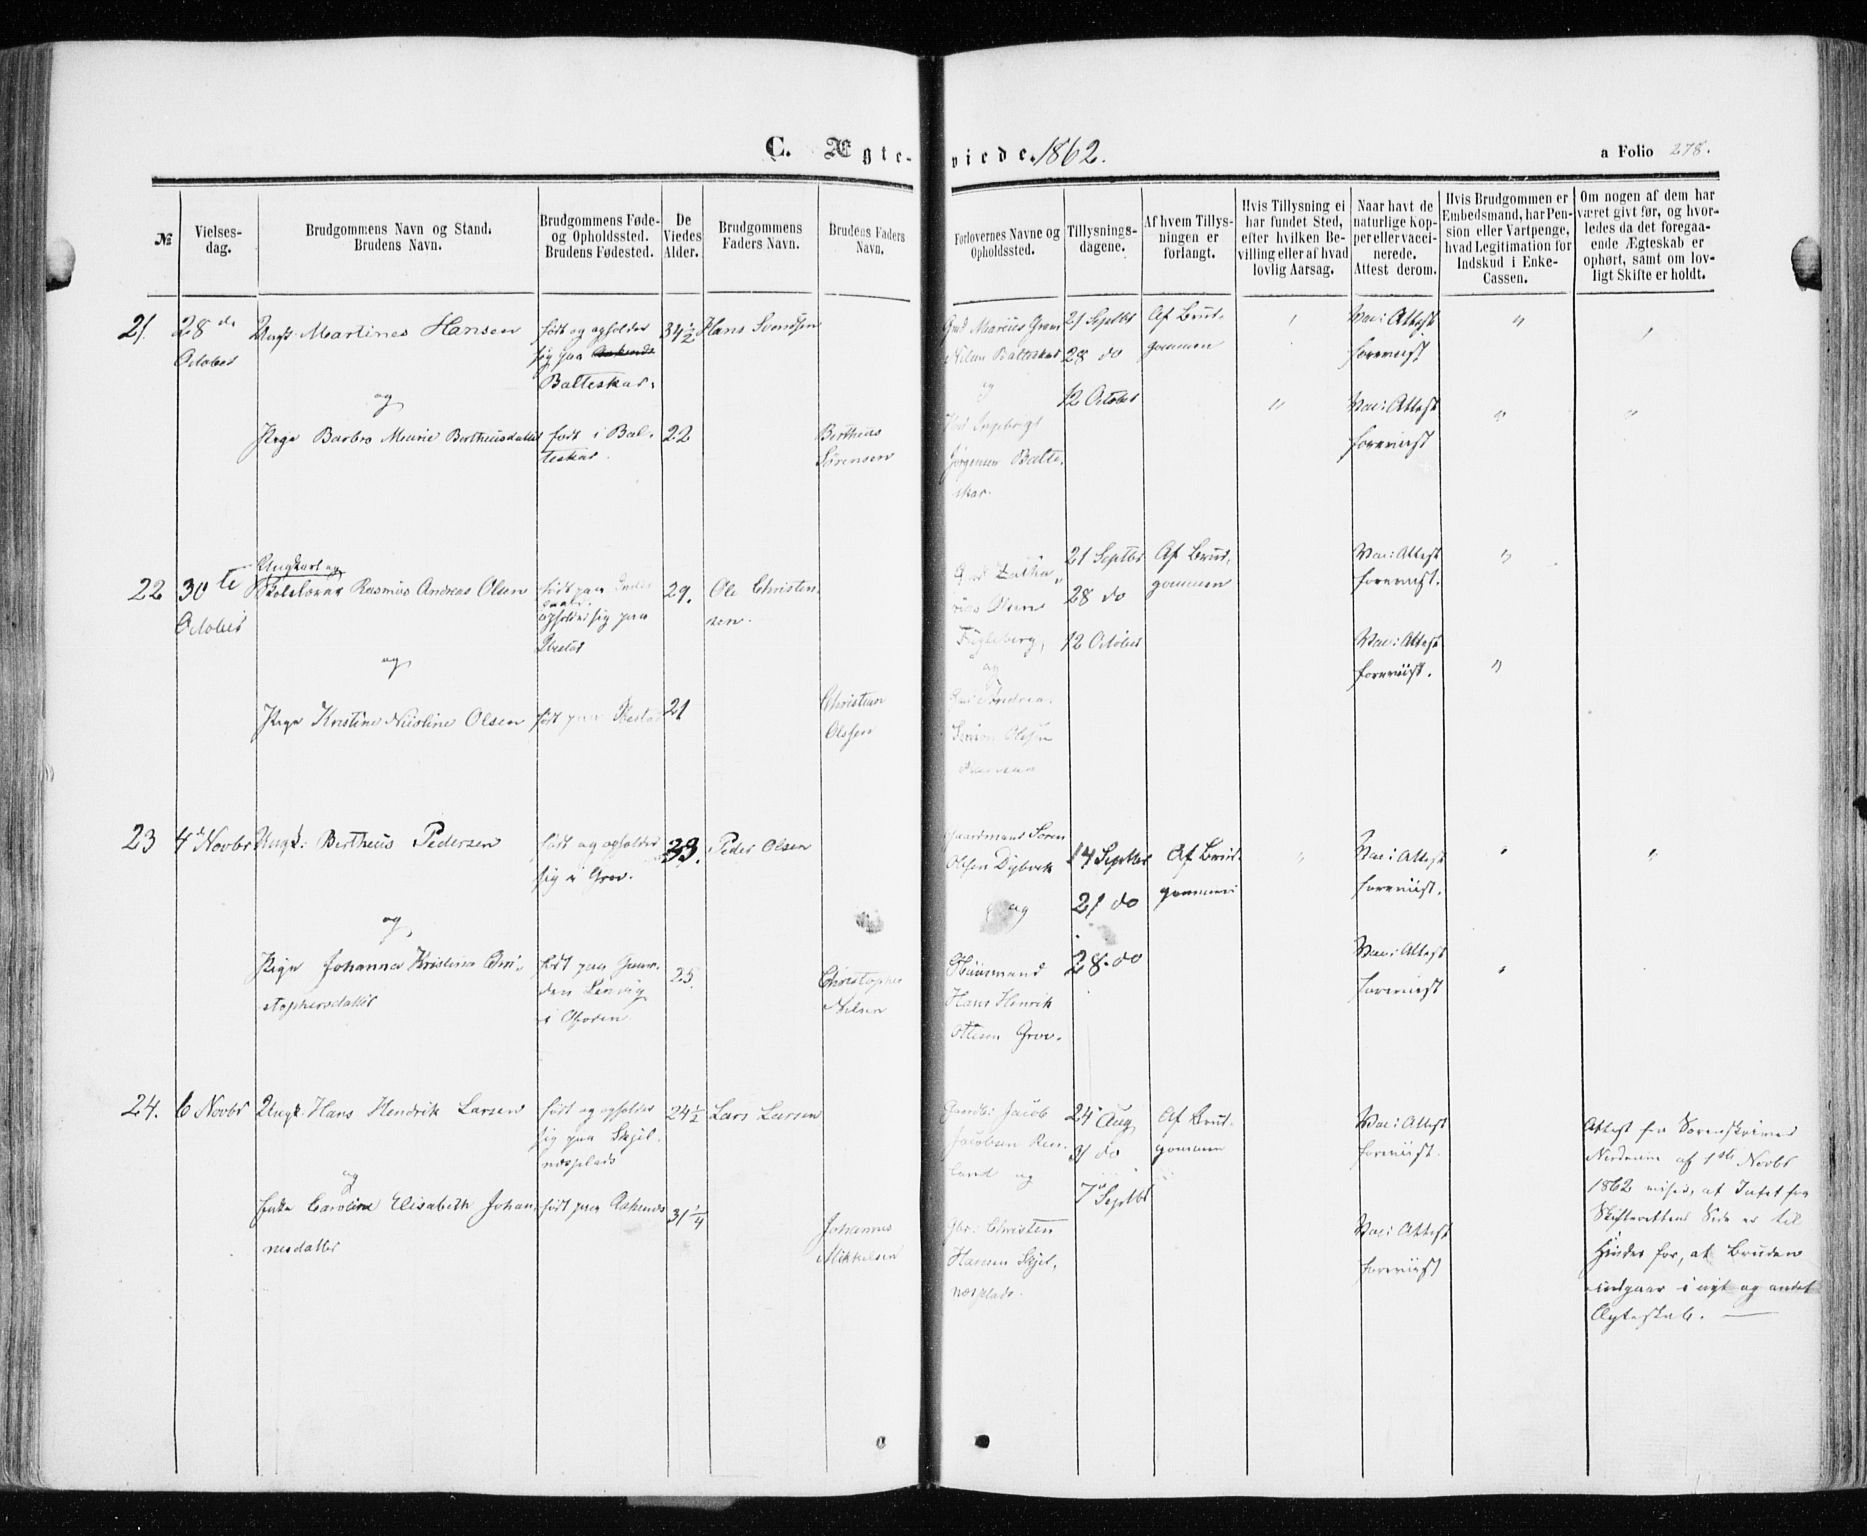 C. Ægte-
viede. 1862.
a Folio 278.
№
Vielses-
dag.
Brudgommens Navn og Stand.
Brudens Navn.
Brudgommens Føde-
og Opholdssted.
Brudens Fødested.
De
Viedes
Alder.
Brudgommens
Faders Navn.
Brudens Faders
Navn.
Forlovernes Navne og
Opholdssted.
Tillysnings-
dagene.
Af hvem Tillys-
ningen er
forlangt.
Hvis Tillysning ei
har fundet Sted,
efter hvilken Be-
villing eller af hvad
lovlig Aarsag.
Naar havt de
naturlige Kop-
per eller vacci-
nerede.
Attest derom.
Hvis Brudgommen er
Embedsmand, har Pen-
sion eller Vartpenge,
hvad Legitimation for
Indskud i Enke-
Cassen.
Om nogen af dem har
været givt før, og hvor-
ledes da det foregaa-
ende Ægteskab er
ophørt, samt om lov-
ligt Skifte er holdt.
21.
28de
October
Ungk: Martines Hansen
og
Pige Barbro Marie Bertheusdatter
født og opholder
sig paa
Balteskar.
født i Bal-
teskar.
34½
22
Hans Svendsen
Bertheus
Sørensen
Gmd Marcus
Nilsen Balteskar
og
Ingebrigt
Jørgensen Balte-
skar.
21 Septbr
28 do
12 October
Af Brud-
gommen
Vac: Attest
foreviist.
Vac: Attest
foreviist
22
30te
October
Ungkarl og
Skolelærer Rasmus Andreas Olsen
og
Pige Kristine Nicoline Olsen
født paa
opholder sig paa
Ibestad
født paa Ibestad
29.
21
Ole Christen-
sen.
Christian
Olsen
Olsen
Fugleberg,
og
Olsen
21 Septbr
28 do
12 October
Af Brud-
gommen
Vac: Attest
foreviist.
Vac: Attest
foreviist.
23
4de Novbr
Ungk: Bertheus Pedersen
og
Pige Johanna Kristina Chri-
stophersdatter
født og opholder
sig i Grov.
født paa Gaar-
den Lenvig
i Ofoten
33.
25.
Peder Olsen
Christopher
Nilsen
Gaardmand Søren
Olsen Dybvik
og
Huusmand
Hans Henrik
Ottesen Grov.
14 Septbr
21 do
28 do
Af Brud-
gommen
Vac: Attest
foreviist.
Vac: Attest
foreviist
24.
6 Novbr
Ungk: Hans Hendrik Larsen
og
Enke Caroline Elisabeth Johan-
nesdatter
født og opholder
sig paa Skjel-
næsplads
født paa Aakenes
24½
31¼
Lars Larsen
Johannes
Mikkelsen
Gaardbr: Jacob
Jacobsen
land og
Gbr: Christen
Hansen Skjel-
næsplads.
24 Aug
31 do
7 Septbr
Af Brud-
gommen
Vac: Attest
foreviist.
Vac: Attest
foreviist
Attest fra Sorenskriver
af 1ste Novbr
1862 viser, at Intet fra
Skifterettens Side er til
Hinder for, at Bruden
indgaar i nyt og andet
Ægteskab.